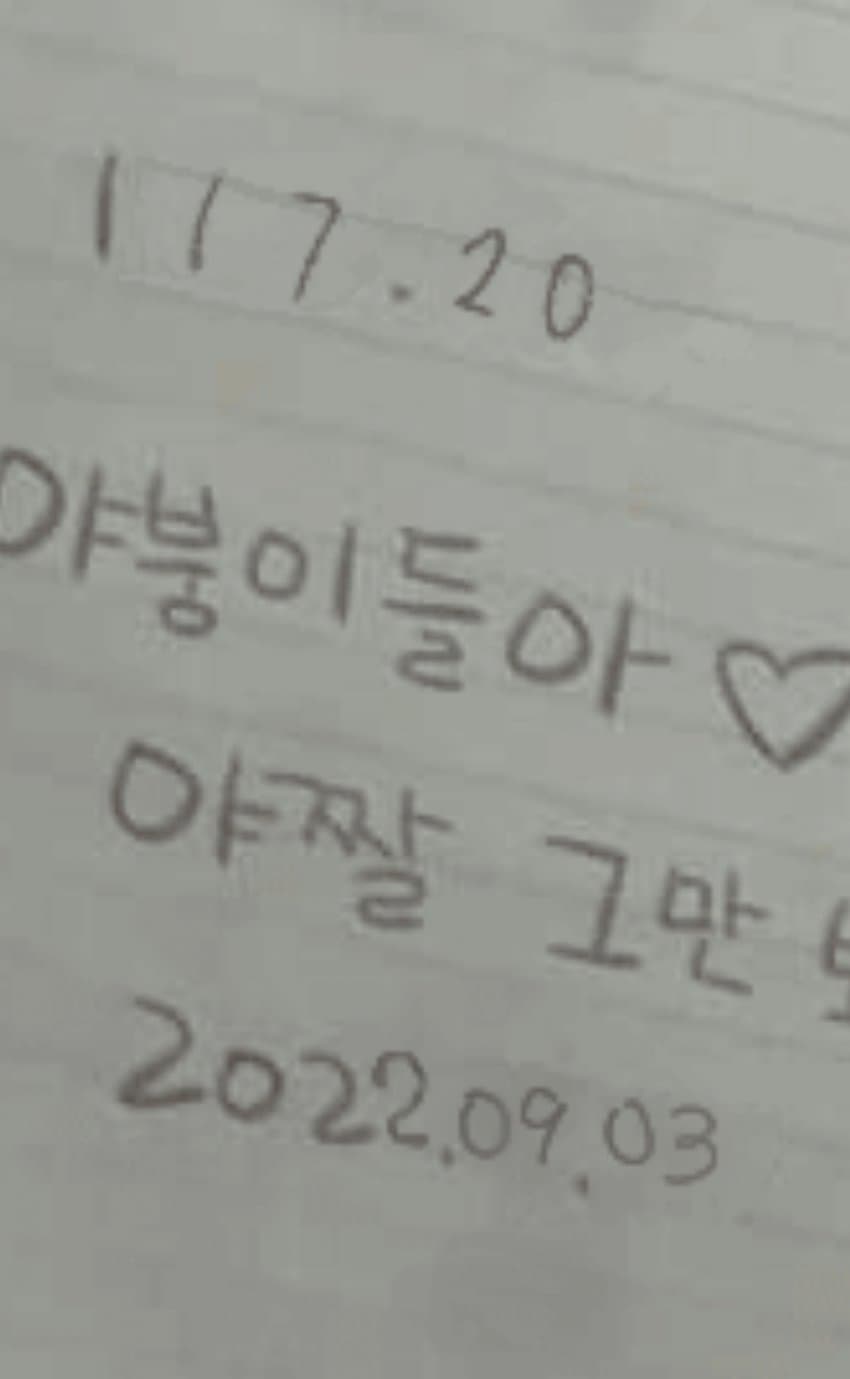 117.20
야붕이들아♡
야짤 그만
2022.09.03